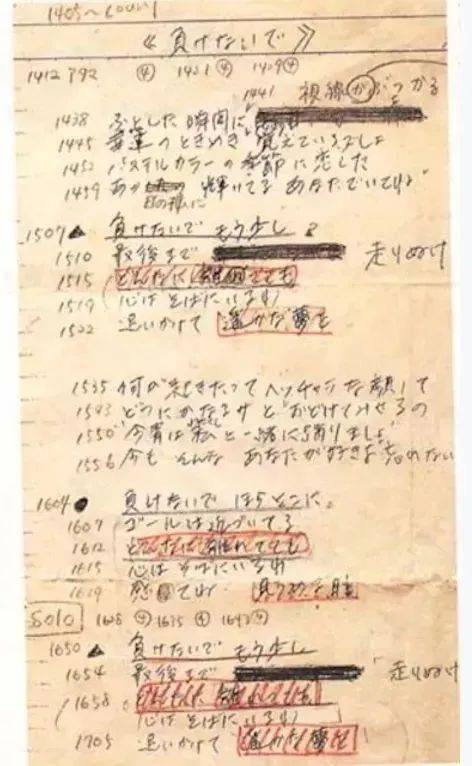 1405～count
《負けないで》
1412 ④ 1421④ 1429④
1441 視線がぶつかる
1438 ふとした瞬間に
1445 のときめき 覚えているでしょ
1452 パステルカラーの季節に恋した
1459 あの 輝いてる あなたでいてね
日の様に
1507▲ 負けないで もう少し
1510 最後まで 走りぬけ
1515 どんなに 離れてても
1519 心は そばにいるわ
1522 追いかけて 遥かな夢を
1535 何が起きたって ヘッチャラな顔して
1543 どうにかなるサと おどけてみせるの
1550 "今宵は私と一緒に踊りましょ"
1556 今も そんな あなたが好きよ 忘れない
1604● 負けないで ほらそこに。
1607 ゴールは近づいてる
1612 どんなに 離れてても
1615 心は そばにいるわ
1619 感じてね 見つめる瞳
Solo 1628 ④ 1635 ④ 1642④
1650▲ 負けないで もう少し
1654 最後まで 走りぬけ
1658 どんなに 離れてても
心は そばにいるわ
1705 追いかけて 遥かな夢を